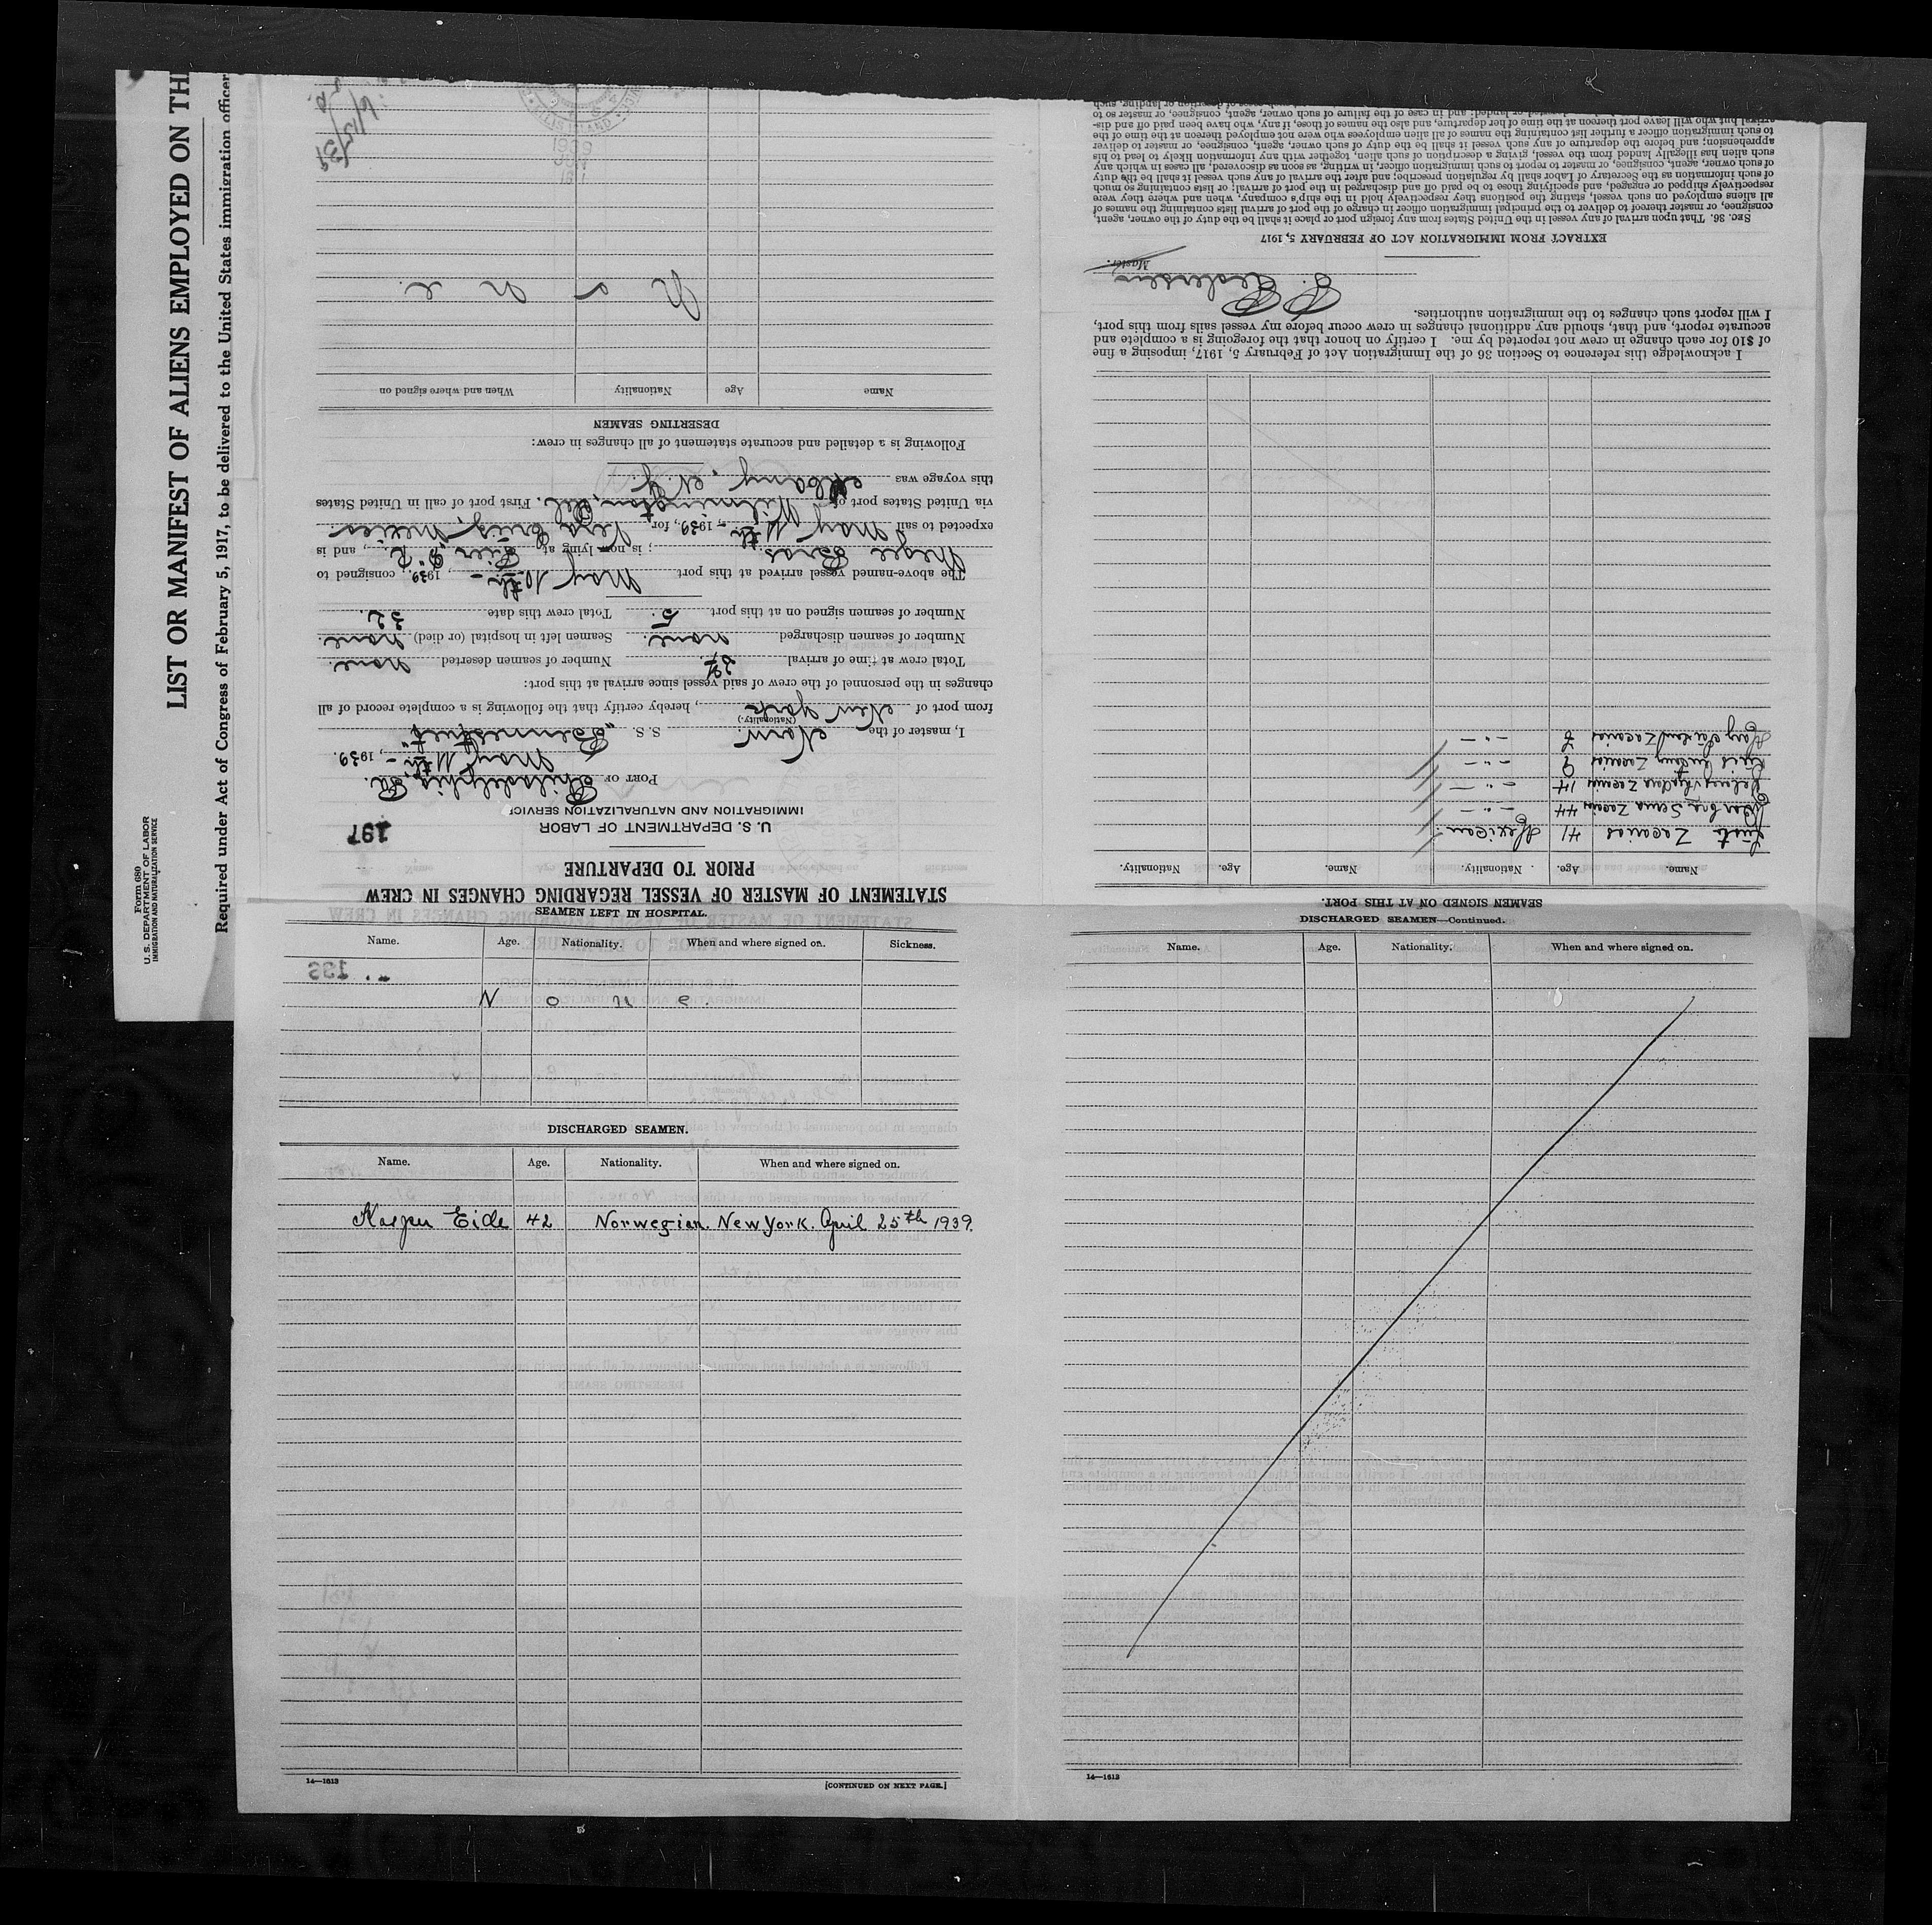 Form 680
U. S. DEPARTMENT OF LABOR
IMMIGRATION AND NATURALIZATION SERVICE
LIST OR MANIFEST OF ALIENS EMPLOYED ON TH
Required under Act of Congress of February 5, 1917, to be delivered to the United States immigration officer
STATEMENT OF MASTER OF VESSEL REGARDING CHANGES IN CREW
PRIOR TO DEPARTURE
U. S. DEPARTMENT OF LABOR
IMMIGRATION AND NATURALIZATION SERVICE
197
PORT OF Philadelphia, Pa.
May 11th -, 1939.
I, master of the Norw. S. S.
(Nationality.)
from port of New York, hereby certify that the following is a complete record of all
changes in the personnel of the crew of said vessel since arrival at this port:
Total crew at time of arrival 27 Number of seamen deserted None.
Number of seamen discharged none. Seamen left in hospital (or died) None
Number of seamen signed on at this port 5. Total crew this date 32.
The above-named vessel arrived at this port May 10th -, 1939, consigned to
Bros. ; is now lying at Pier, and is
expected to sail May 11th - 1939, for Vera Cruz, Mexico.
via United States port of Wilmington, Del. First port of call in United States
this voyage was Albany, N.Y.
Following is a detailed and accurate statement of all changes in crew:
DESERTING SEAMEN
Name Age Nationality When and where signed on
N o n e.
1939
JUN
6/15/39
SEAMEN SIGNED ON AT THIS PORT.
Name. Age. Nationality. Name. Age. Nationality.
Justo Zacarias 41 Mexican.
Serna Zacarias 44 - " -
Zacarias 14 - " -
Luis Zacarias 9 - " -
Mary Zacarias 7 - " -
I acknowledge this reference to Section 36 of the Immigration Act of February 5, 1917, imposing a fine
of $10 for each change in crew not reported by me. I certify on honor that the foregoing is a complete and
accurate report, and that, should any additional changes in crew occur before my vessel sails from this port,
I will report such changes to the immigration authorities.
P. Pedersen
Master.
EXTRACT FROM IMMIGRATION ACT OF FEBRUARY 5, 1917
SEC. 36. That upon arrival of any vessel in the United States from any foreign port or place it shall be the duty of the owner, agent,
consignee, or master thereof to deliver to the principal immigration officer in charge of the port of arrival lists containing the names of
all aliens employed on such vessel, stating the positions they respectively hold in the ship's company, when and where they were
respectively shipped or engaged, and specifying those to be paid off and discharged in the port of arrival; or lists containing so much
of such information as the Secretary of Labor shall by regulation prescribe; and after the arrival of any such vessel it shall be the duty
of such owner, agent, consignee, or master to report to such immigration officer, in writing, as soon as discovered, all cases in which any
such alien has illegally landed from the vessel, giving a description of such alien, together with any information likely to lead to his
apprehension; and before the departure of any such vessel it shall be the duty of such owner, agent, consignee, or master to deliver
to such immigration officer a further list containing the names of all alien employees who were not employed thereon at the time of the
arrival but who will leave port thereon at the time of her departure, and also the names of those, if any, who have been paid off and dis-
landed; and in case of the failure of such owner, agent, consignee, or master so to
SEAMEN LEFT IN HOSPITAL.
Name. Age. Nationality. When and where signed on. Sickness.
N o n e.
DISCHARGED SEAMEN.
Name. Age. Nationality. When and where signed on.
Kasper Eide 42 Norwegian. New York. April 25th 1939.
14—1613
[CONTINUED ON NEXT PAGE.]
DISCHARGED SEAMEN—Continued.
Name. Age. Nationality. When and where signed on.
14—1613